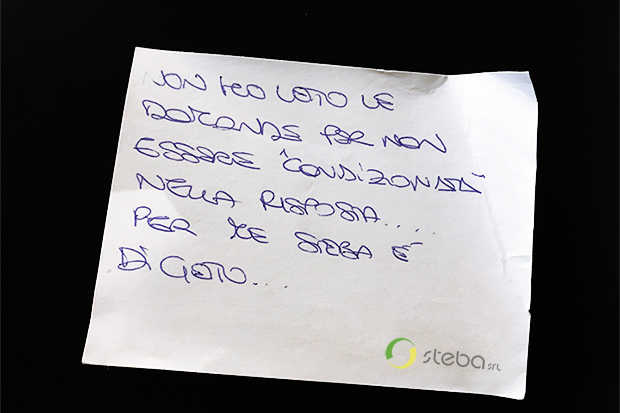 NON HO LETO LE
DOMANDE PER NON
ESSERE "CONDIZIONATA"
NELLA RISPOSTA.....
PER ME STEBA È
DI
steba srl